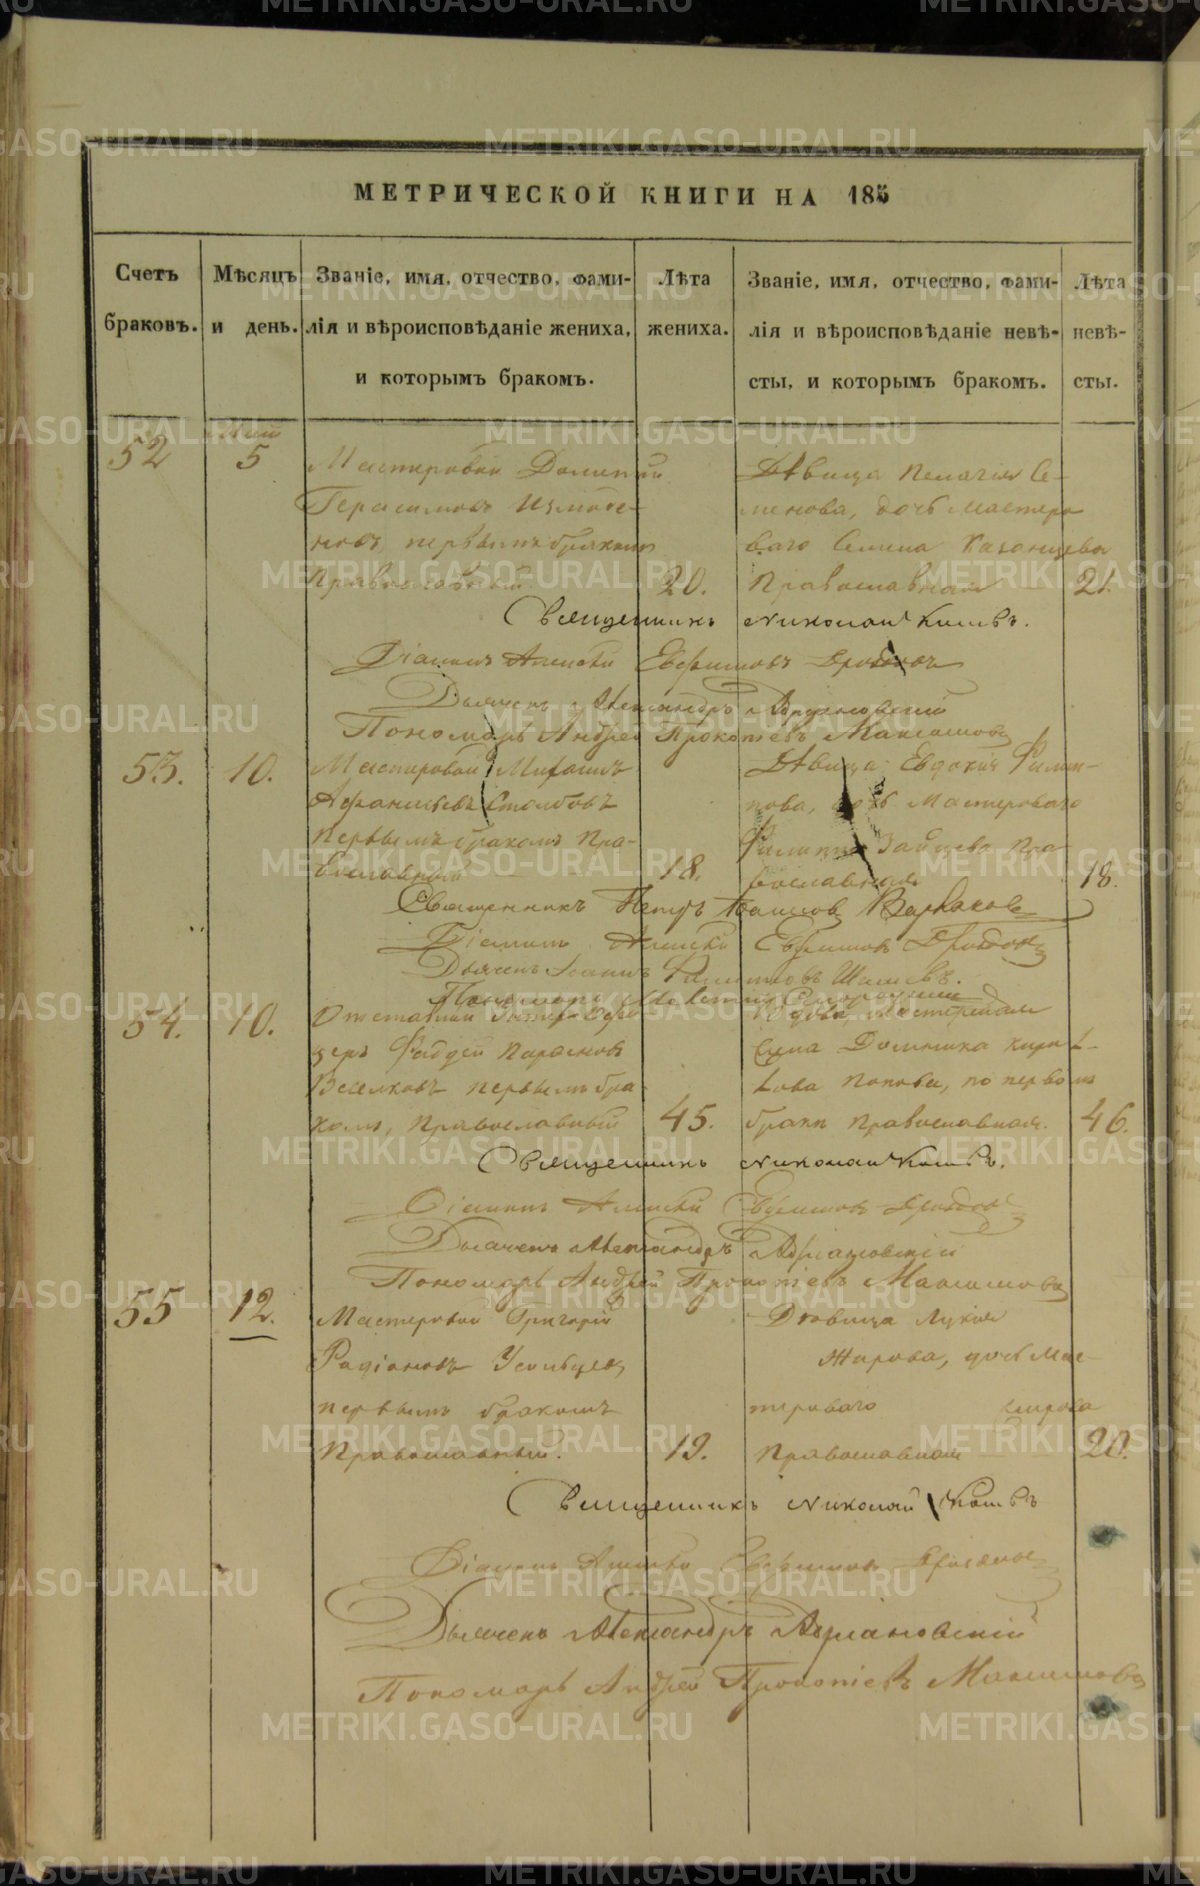 МЕТРИЧЕСКОЙ КНИГИ НА 185
Счетъ браковъ.
Мѣсяцъ и день.
Званіе, имя, отчество, фами-
лія и вѣроисповѣданіе жениха,
и которымъ бракомъ.
Лѣта жениха.
Званіе, имя, отчество, фами-
лія и вѣроисповѣданіе невѣ-
сты, и которымъ бракомъ.
Лѣта невѣ-
сты.
52
Маія
5
Мастеровой
Герасимовъ
первымъ бракомъ
Православный
20.
Дѣвица Пелагія Се-
менова, дочь Мастеро
ваго Семена Казанцева
Православная
21.
Священникъ Николай
Діаконъ Алексѣй Евфимовъ
Дьячекъ Александръ Адріановскій
Пономарь Андрей Прокопіевъ Максимовъ
53.
10.
Мастеровой Михаилъ
Афанасьевъ Столбовъ
первымъ бракомъ Пра-
вославный
18.
Дѣвица Евдокія Филип-
пова, дочь Мастероваго
Филиппа Зайцева Пра-
вославная
18.
Священникъ Петръ
Діаконъ Алексѣй Евфимовъ
Дьячекъ Іоаннъ
Пономарь
54.
10.
Отставной Унтеръ Офи
церъ Фаддей
первымъ бра-
комъ, Православный
45.
Вдова, Мастерская
Домника Кирил-
лова Попова, по первомъ
бракѣ Православная.
46.
Священникъ Николай
Діаконъ Алексѣй Евфимовъ
Дьячекъ Александръ Адріановскій
Пономарь Андрей Прокопіевъ Максимовъ
55
12.
Мастеровой Григорій
Родіоновъ Усольцевъ
первымъ бракомъ
Православный.
19.
Дѣвица Лукія
Жирова, дочь Мас-
тероваго
Православная
20.
Священникъ Николай
Діаконъ Алексѣй Евфимовъ
Дьячекъ Александръ Адріановскій
Пономарь Андрей Прокопіевъ Максимовъ
METRIKI.GASO-URAL.RU